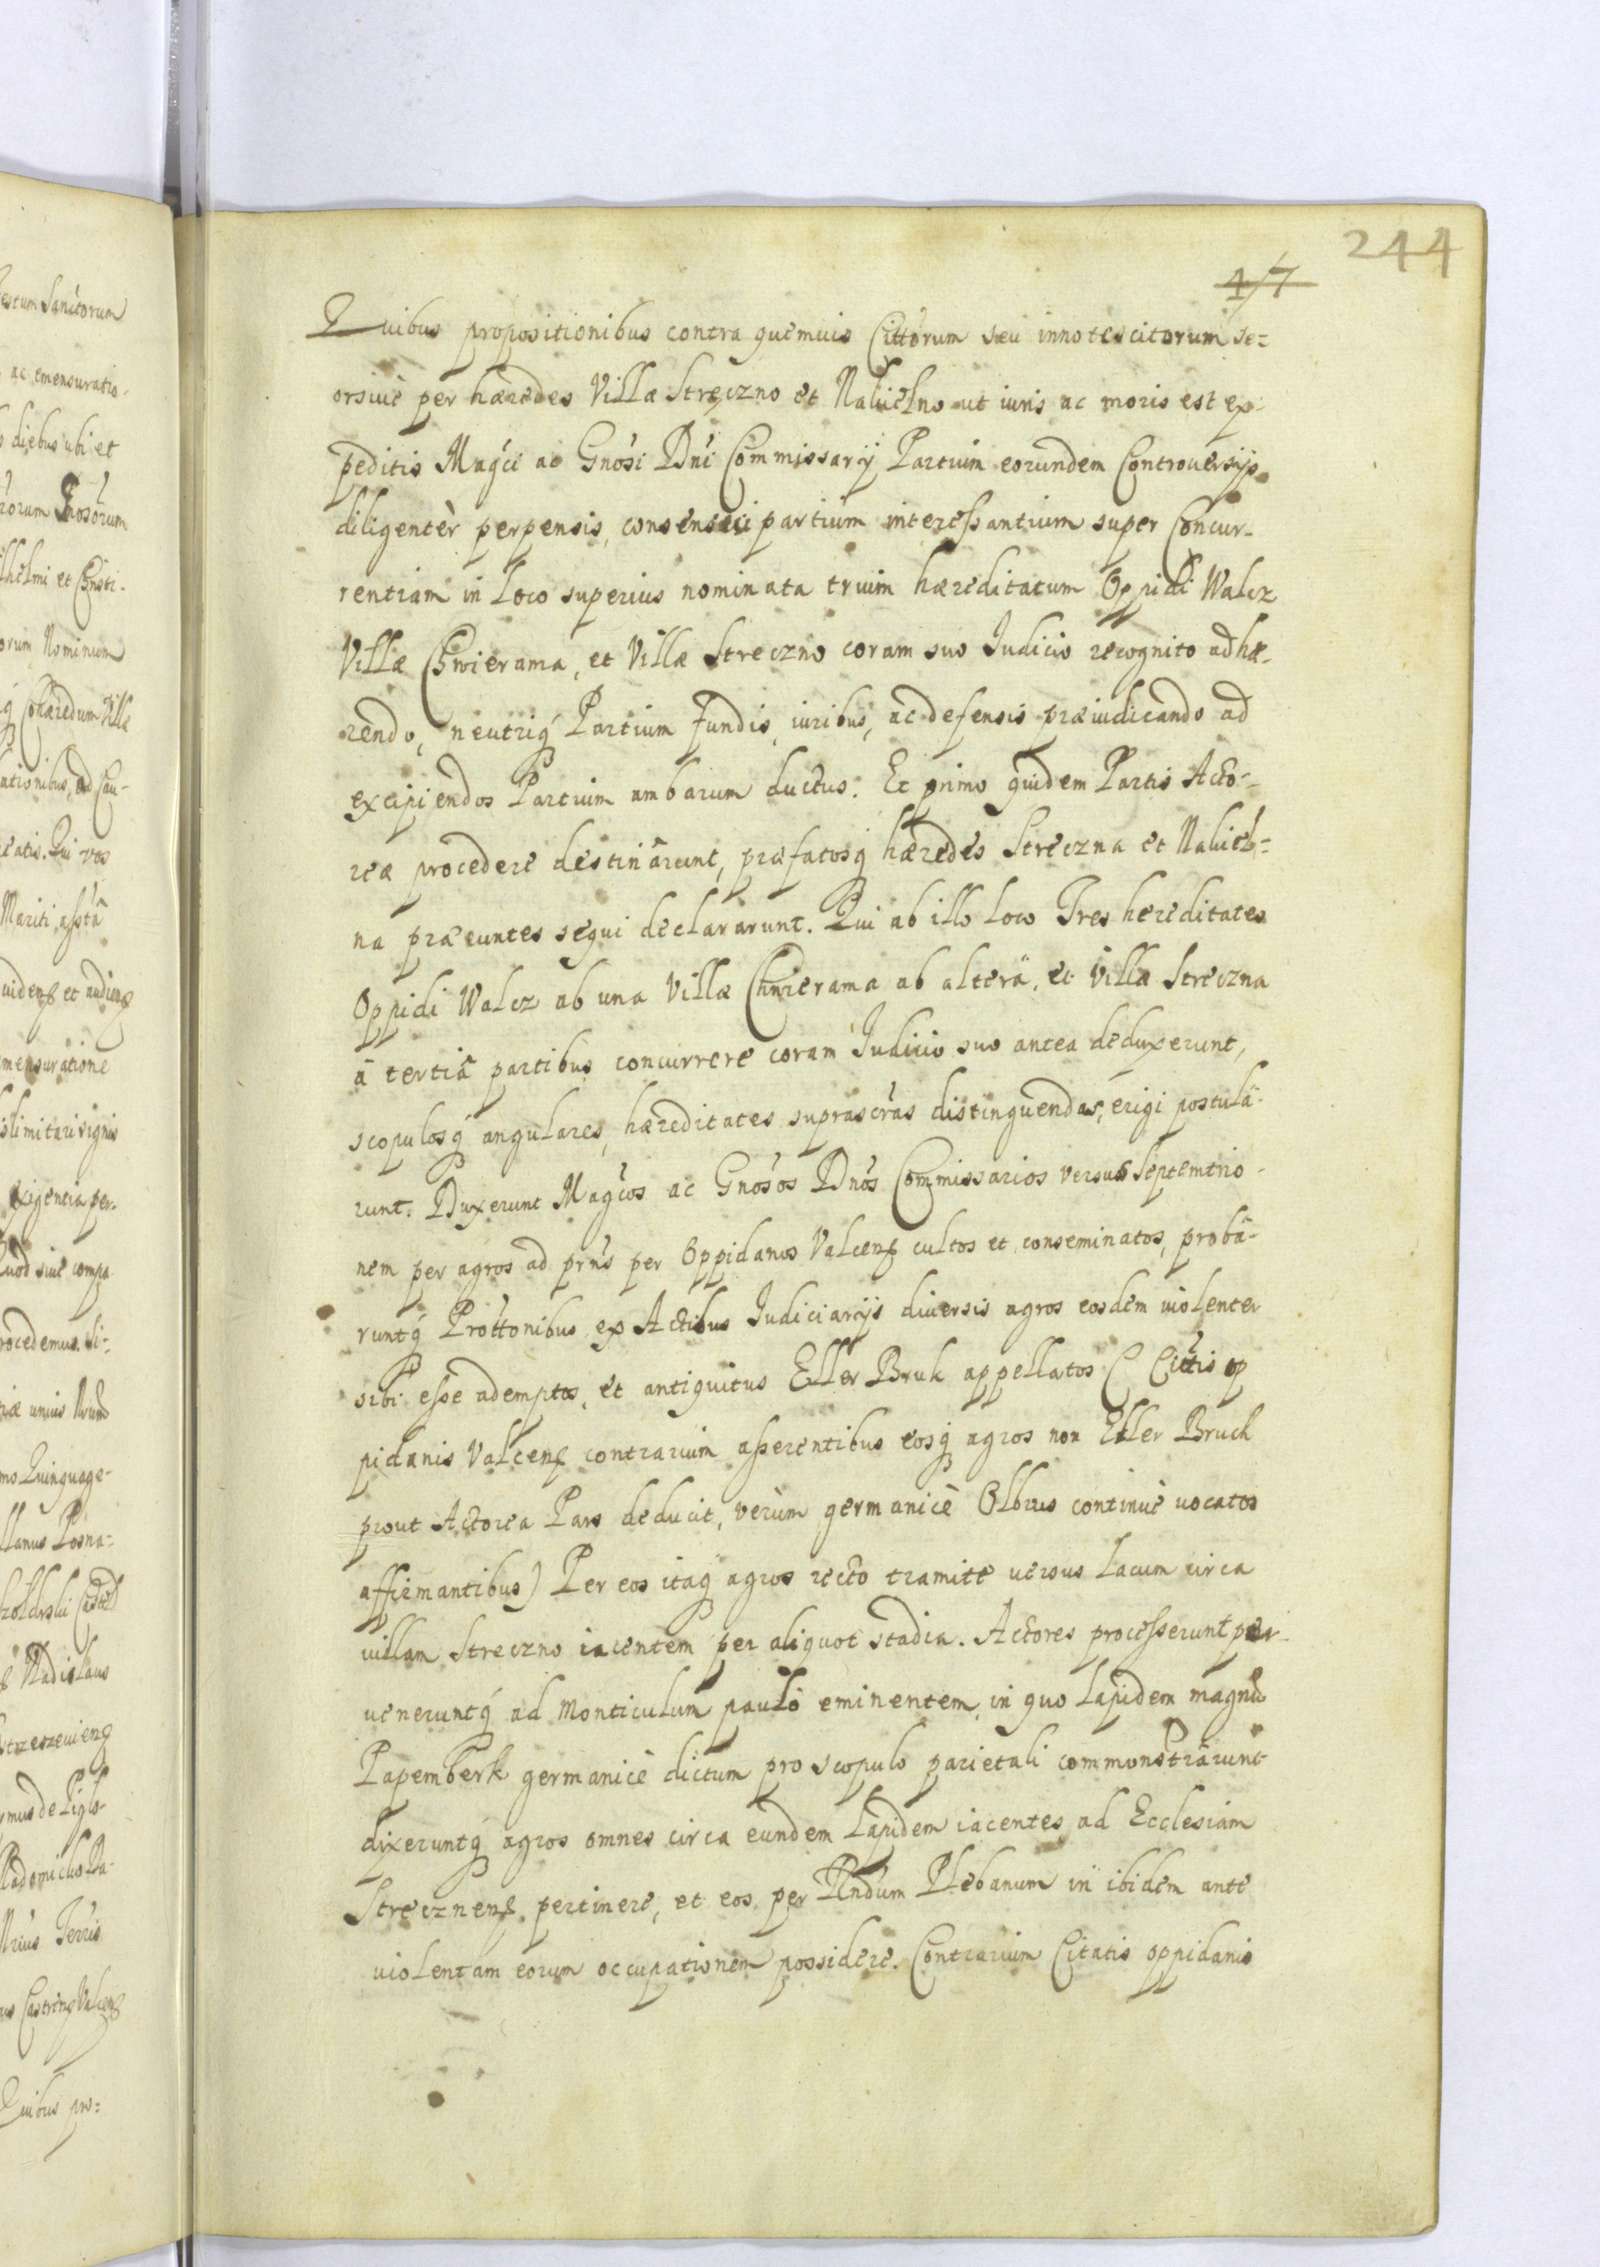 244
47
Quibus propositionibus contra quemuis Cittorum seu innotescitorum se=
orsiue per hæredes Villæ Stręczno et Nakielno ut iuris ac moris est ex-
peditis Magci ac Gnosi Dni Commissarij Partium eorundem Controuersijs
diligentèr perpensis, consensui partium interessantium super Concur-
rentiam in Loco superius nominata trium hæreditatum Oppidi Walcz
Villæ Chwierama, et Villæ Streczno coram suo Judicio recognito adhæ-
rendo, neutriq Partium Fundis, iuribus, ac defensis præiudicando ad
excipiendos Partium ambarum ductus. Et primo quidem Partis Acto-
reæ procedere destinârunt, præfatosq hæredes Streczna et Nakiel-
na præeuntes sequi declararunt. Qui ab illo loco Tres hereditates
Oppidi Walcz ab una Villæ Chwierama ab alterâ, et Villa Streczna
â tertiâ partibus concurrere coram Judicio suo antea deduxerunt,
scopulosq angulares, hæreditates suprascras distinguendas, erigi postulâ-
runt. Duxerunt Magcos ac Gnosos Dnos Commissarios versus Septemtrio-
nem per agros ad prns per Oppidanos Valcens cultos et conseminatos, probâ-
runtq Prottonibus ex Actibus Judiciarijs diuersis agros eosdem violenter
sibi esse ademptos, et antiquitus Eller Bruk appellatos ( Cittis op
pidanis Valcens contrarium asserentibus eosq agros non Eller Bruch
prout Actorea Pars deducit, verùm germanicè Olbrus continuè uocatos
affirmantibus) Per eos itaq agros recto tramite uersus Lacum circa
uillam Streczno iacentem per aliquot stadia. Actores processerunt per-
ueneruntq ad Monticulum paulò eminentem, in quo Lapidem magnū
Papemberk germanicè dictum pro scopulo parietali commonstrârunt
dixeruntq agros omnes circa eundem Lapidem iacentes ad Ecclesiam
Strecznens pertinere, et eos per Rndum Plebanum in ibidem ante
violentam eorum occupationem possidere. Contrarium Citatis oppidanis